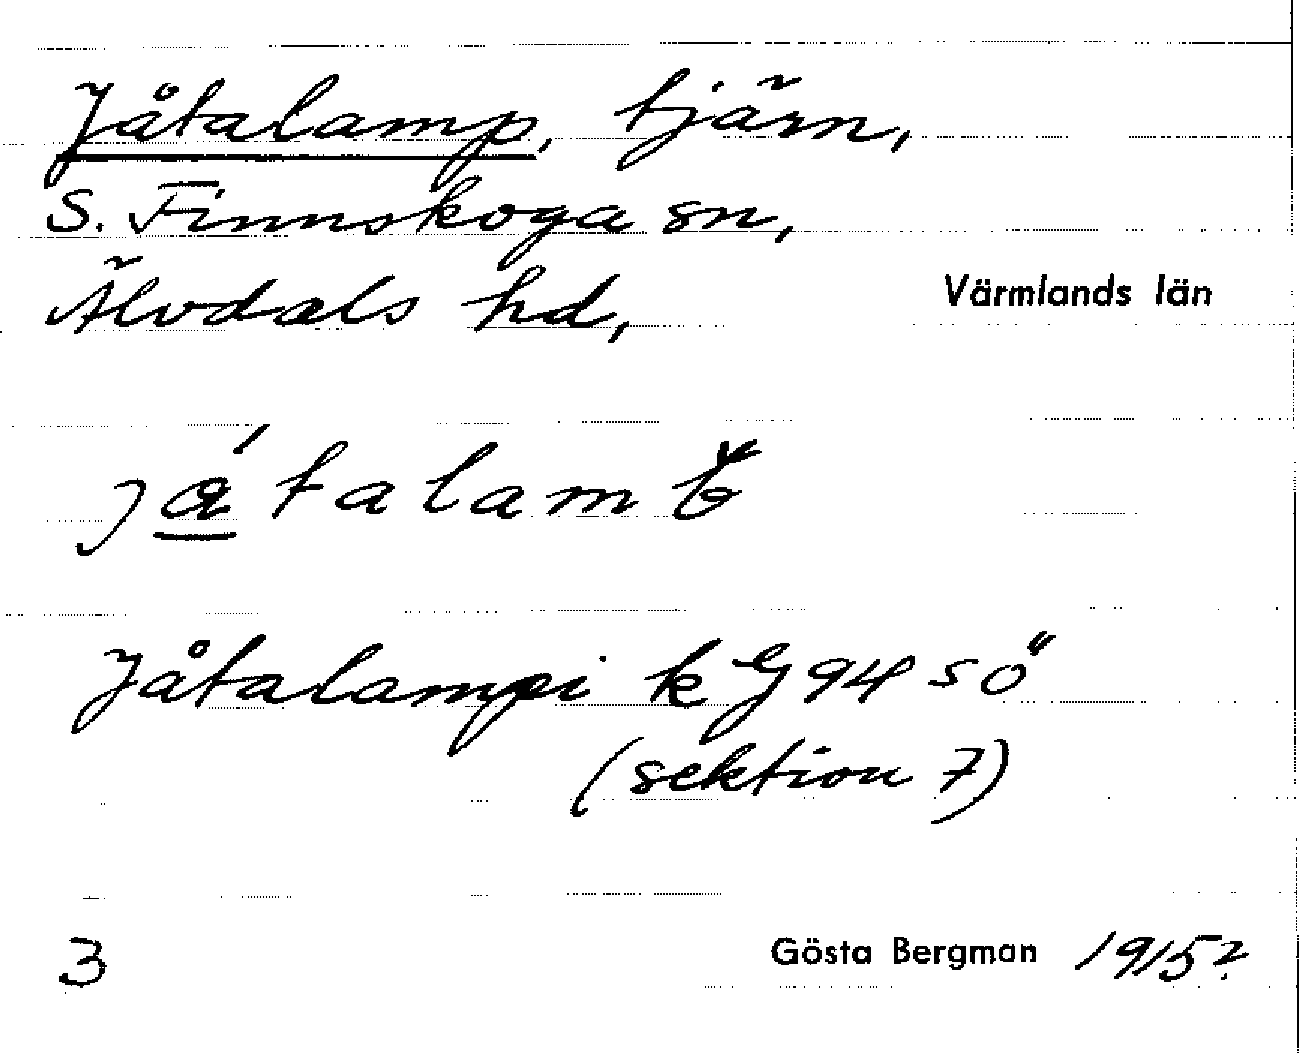 Jåtalamp, tjärn,
S. Finnskoga sn,
Älvdals hd,
Värmlands län
játalam
Jåtalampi k G 94 SÖ
(sektion 7)
3
Gösta Bergman 1915?